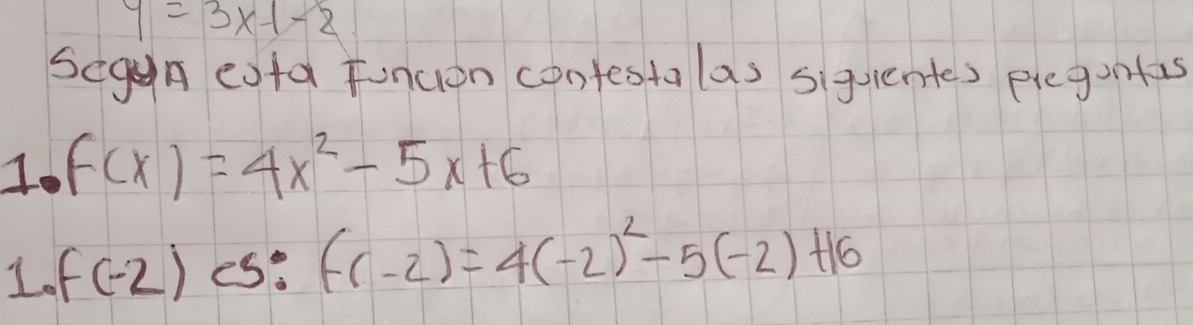 y = 3x + - 2
Según esta función contesta las siguientes preguntas
1. f(x) = 4x² - 5x + 6
1. f(-2) es: f(-2) = 4(-2)² - 5(-2) + 16